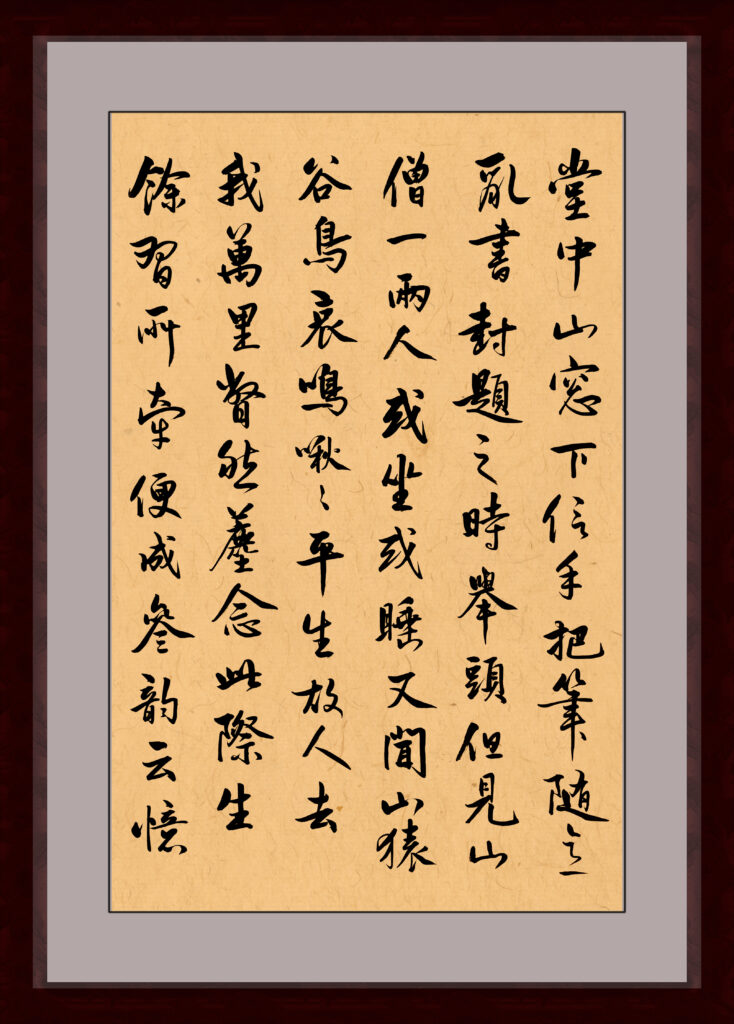 堂中山窓下信手把筆随意
亂書封題之時舉頭但見山
僧一兩人或坐或睡又聞山猿
谷鳥哀鳴啾〻平生故人去
我萬里瞥然塵念此際生
餘習所牽便成叄韵云憶